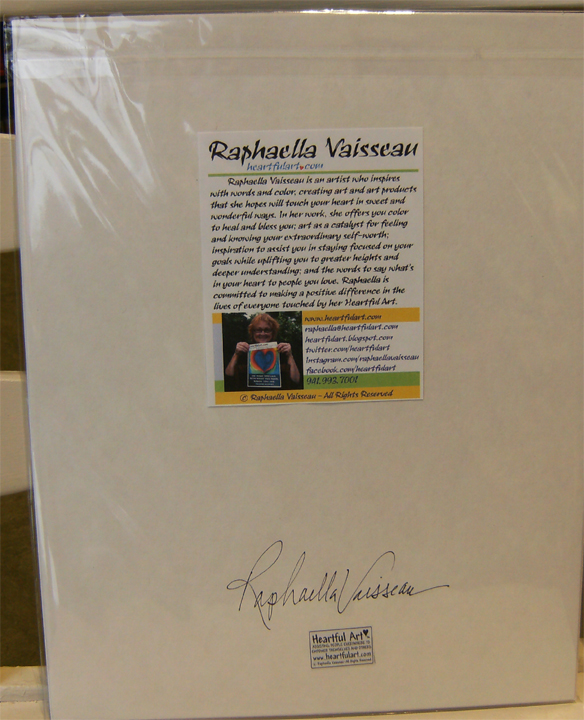 Raphaella Vaisseau
heartfulart.com
Raphaella Vaisseau is an artist who inspires
with words and color, creating art and art products
that she hopes will touch your heart in sweet and
wonderful ways. In her work, she offers you color
to heal and bless you; art as a catalyst for feeling
and knowing your extraordinary self-worth;
inspiration to assist you in staying focused on your
goals while uplifting you to greater heights and
deeper understanding; and the words to say what's
in your heart to people you love. Raphaella is
committed to making a positive difference in the
lives of everyone touched by her Heartful Art.
www.heartfulart.com
raphaella@heartfulart.com
heartfulart.blogspot.com
twitter.com/heartfulart
Instagram.com/raphaellavaisseau
facebook.com/heartfulart
941.993.7001
© Raphaella Vaisseau - All Rights Reserved
Raphaella Vaisseau
Heartful Art
www.heartfulart.com
© Raphaella Vaisseau All Rights Reserved